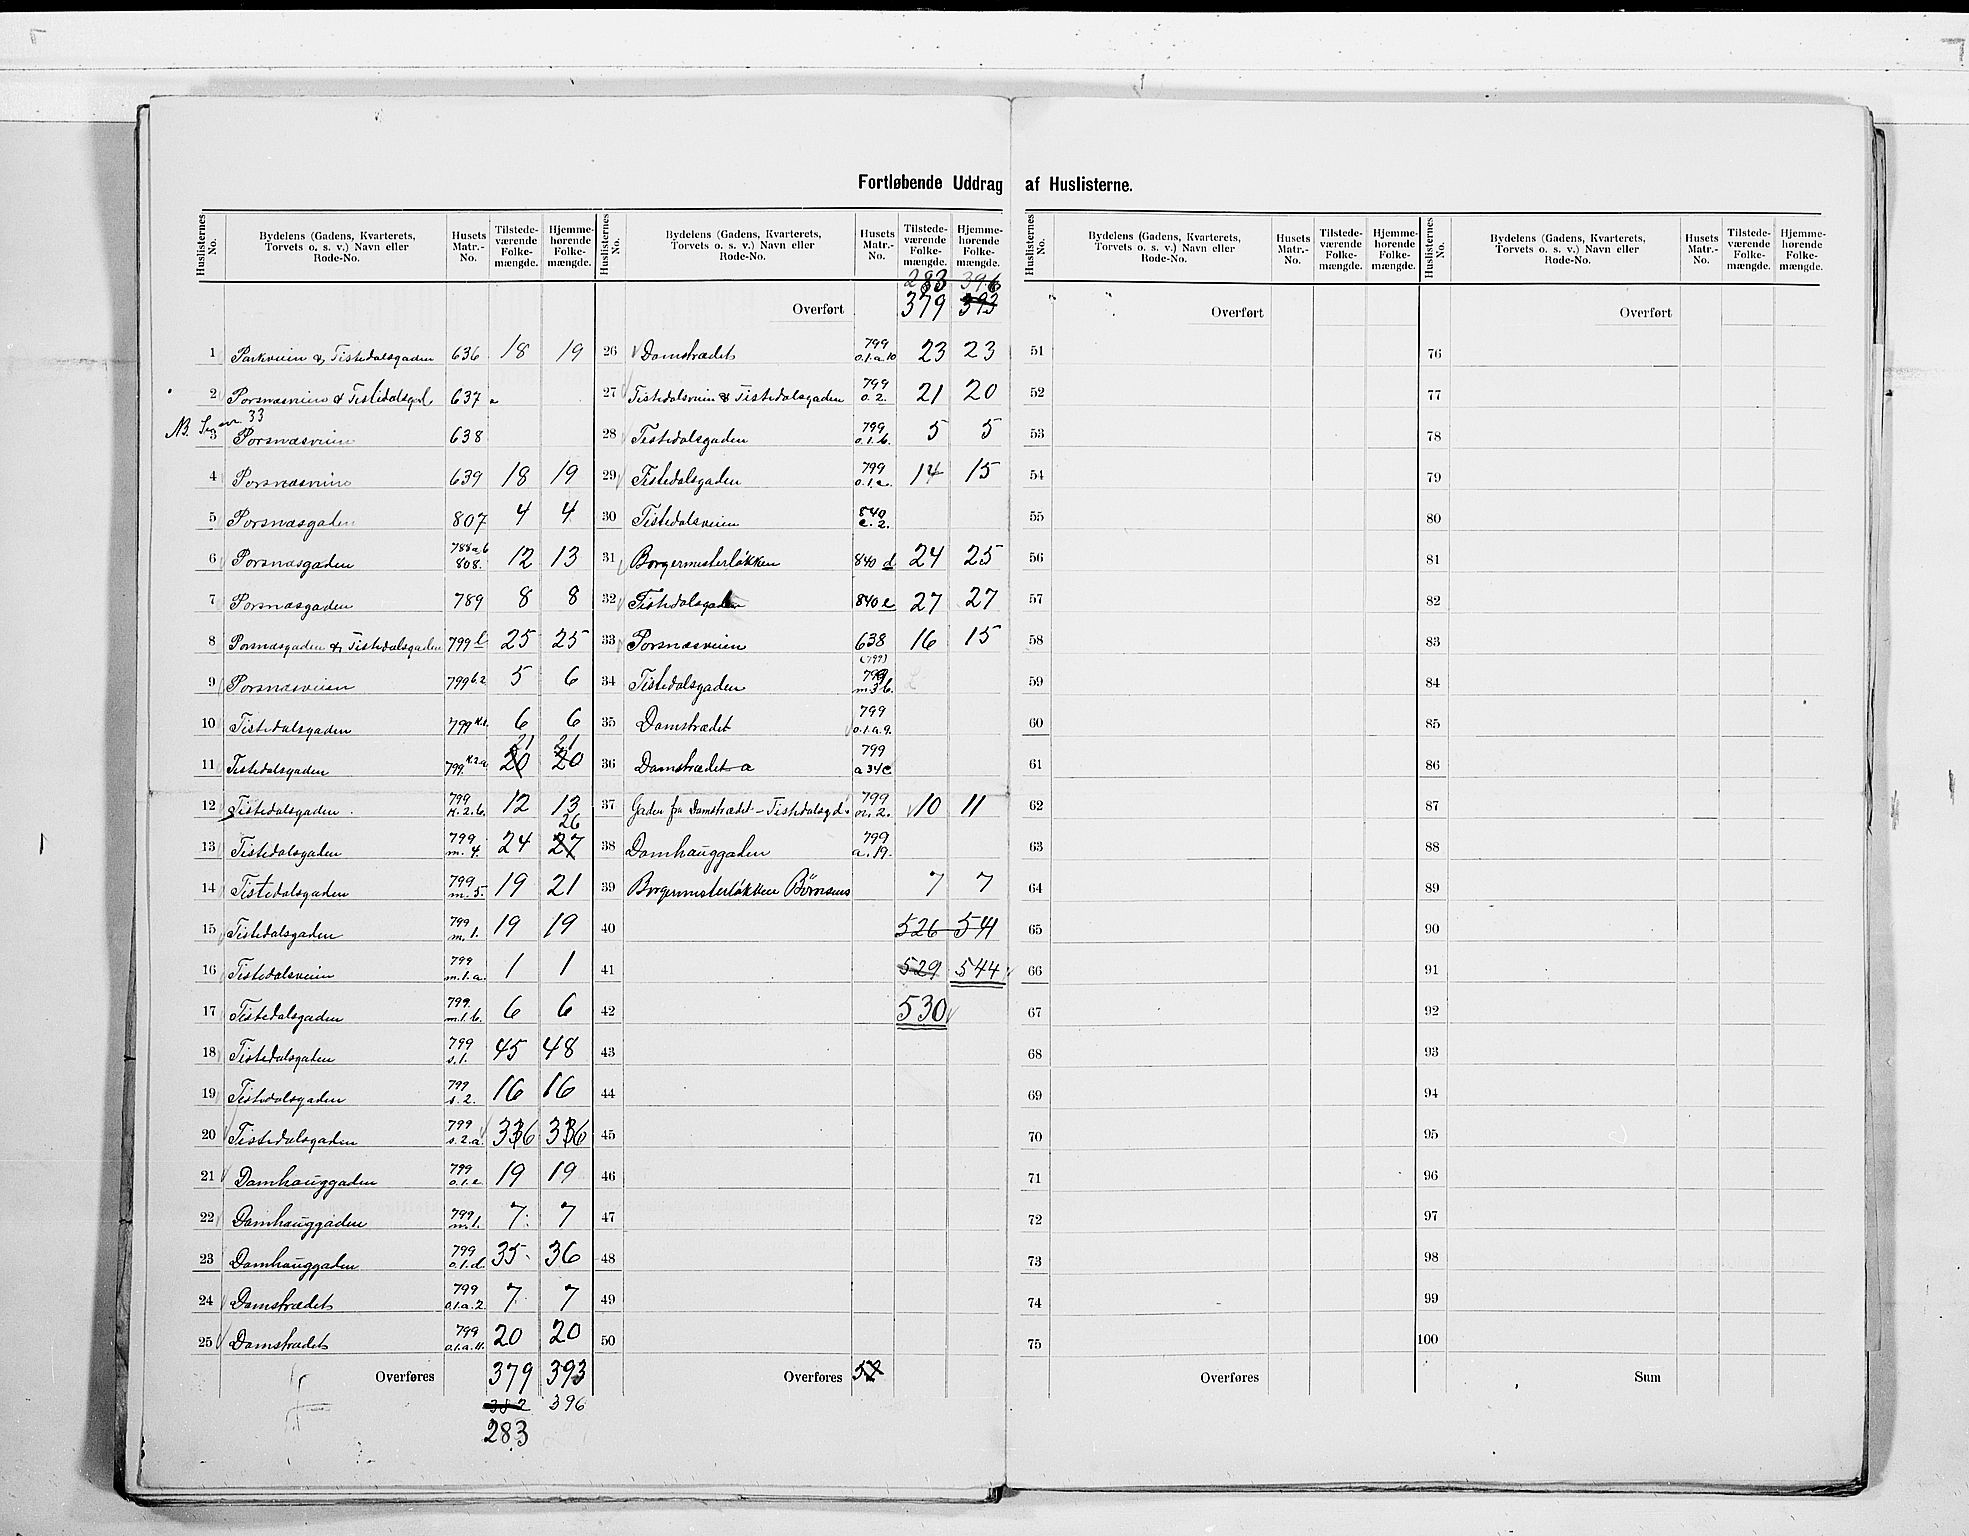 Fortløbende Uddrag af Huslisterne.
Huslisternes No. | Bydelens (Gadens, Kvarterets, Torvets o. s. v.) Navn eller Rode-No. | Husets Matr.-No. | Tilstedeværende Folkemængde. | Hjemmehørende Folkemængde.
1 Parkveien & Tistedalsgaden 636 18 19
2 Porsnæsveien & Tistedalsgd. 637
NB. Se nr. 33
3 Porsnæsveien 638
4 Porsnæsveien 639 18 19
5 Porsnæsgaden 807 4 4
6 Porsnæsgaden 788 a, b 808. 12 13
7 Porsnæsgaden 789 8 8
8 Porsnæsgaden & Tistedalsgaden 799 l 25 25
9 Porsnæsveien 799 b. 2 5 6
10 Tistedalsgaden 799 K.1. 6 6
11 Tistedalsgaden 799. K.2.a. 20 21 20 21
12 Tistedalsgaden 799 K.2.b. 12 13
13 Tistedalsgaden 799 m. 4. 24 27 26
14 Tistedalsgaden 799 m. 5. 19 21
15 Tistedalsgaden 799 m. 1. 19 19
16 Tistedalsveien 799 m.1.a. 1 1
17 Tistedalsgaden 799. m.1.b. 6 6
18 Tistedalsgaden 799 s.1. 45 48
19 Tistedalsgaden 799 s.2. 16 16
20 Tistedalsgaden 799 s.2.a. 36 36
21 Damhauggaden 799 o.1.e 19 19
22 Damhauggaden 799 m.1. 7 7
23 Damhauggaden 799 o.1.d. 35 36
24 Damstrædet 799 o.1.a.2. 7 7
25 Damstrædet 799 o.1.a.11. 20 20
Overføres 379 393
382 396
283
Huslisternes No. | Bydelens (Gadens, Kvarterets, Torvets o. s. v.) Navn eller Rode-No. | Husets Matr.-No. | Tilstedeværende Folkemængde. | Hjemmehørende Folkemængde.
283 396
Overført 379 393
26 Damstrædet 799 o.1.a.10 23 23
27 Tistedalsveien & Tistedalsgaden 799 o.2. 21 20
28 Tistedalsgaden 799 o.1.b. 5 5
29 Tistedalsgaden 799 o.1.c. 14 15
30 Tistedalsveien 840 c.2.
31 Borgermesterløkken 840 d 24 25
32 Tistedalsgaden 840 e 27 27
33 Porsnæsveien 638 16 15
(799)
34 Tistedalsgaden 799 m.3.b.
35 Damstrædet 799 o.1.a.9.
36 Damstrædet a 799 a 34 c
37 Gaden fra Damstrædet - Tistedalsgd. 799 2. 10 11
38 Damhauggaden 799 a.19.
39 Borgermesterløkken 7 7
40 526 541
41 529 544
42 530
43
44
45
46
47
48
49
50
Overføres 52
Huslisternes No. | Bydelens (Gadens, Kvarterets, Torvets o. s. v.) Navn eller Rode-No. | Husets Matr.-No. | Tilstedeværende Folkemængde. | Hjemmehørende Folkemængde.
Overført
51
52
53
54
55
56
57
58
59
60
61
62
63
64
65
66
67
68
69
70
71
72
73
74
75
Overføres
Huslisternes No. | Bydelens (Gadens, Kvarterets, Torvets o. s. v.) Navn eller Rode-No. | Husets Matr.-No. | Tilstedeværende Folkemængde. | Hjemmehørende Folkemængde.
Overført
76
77
78
79
80
81
82
83
84
85
86
87
88
89
90
91
92
93
94
95
96
97
98
99
100
Sum